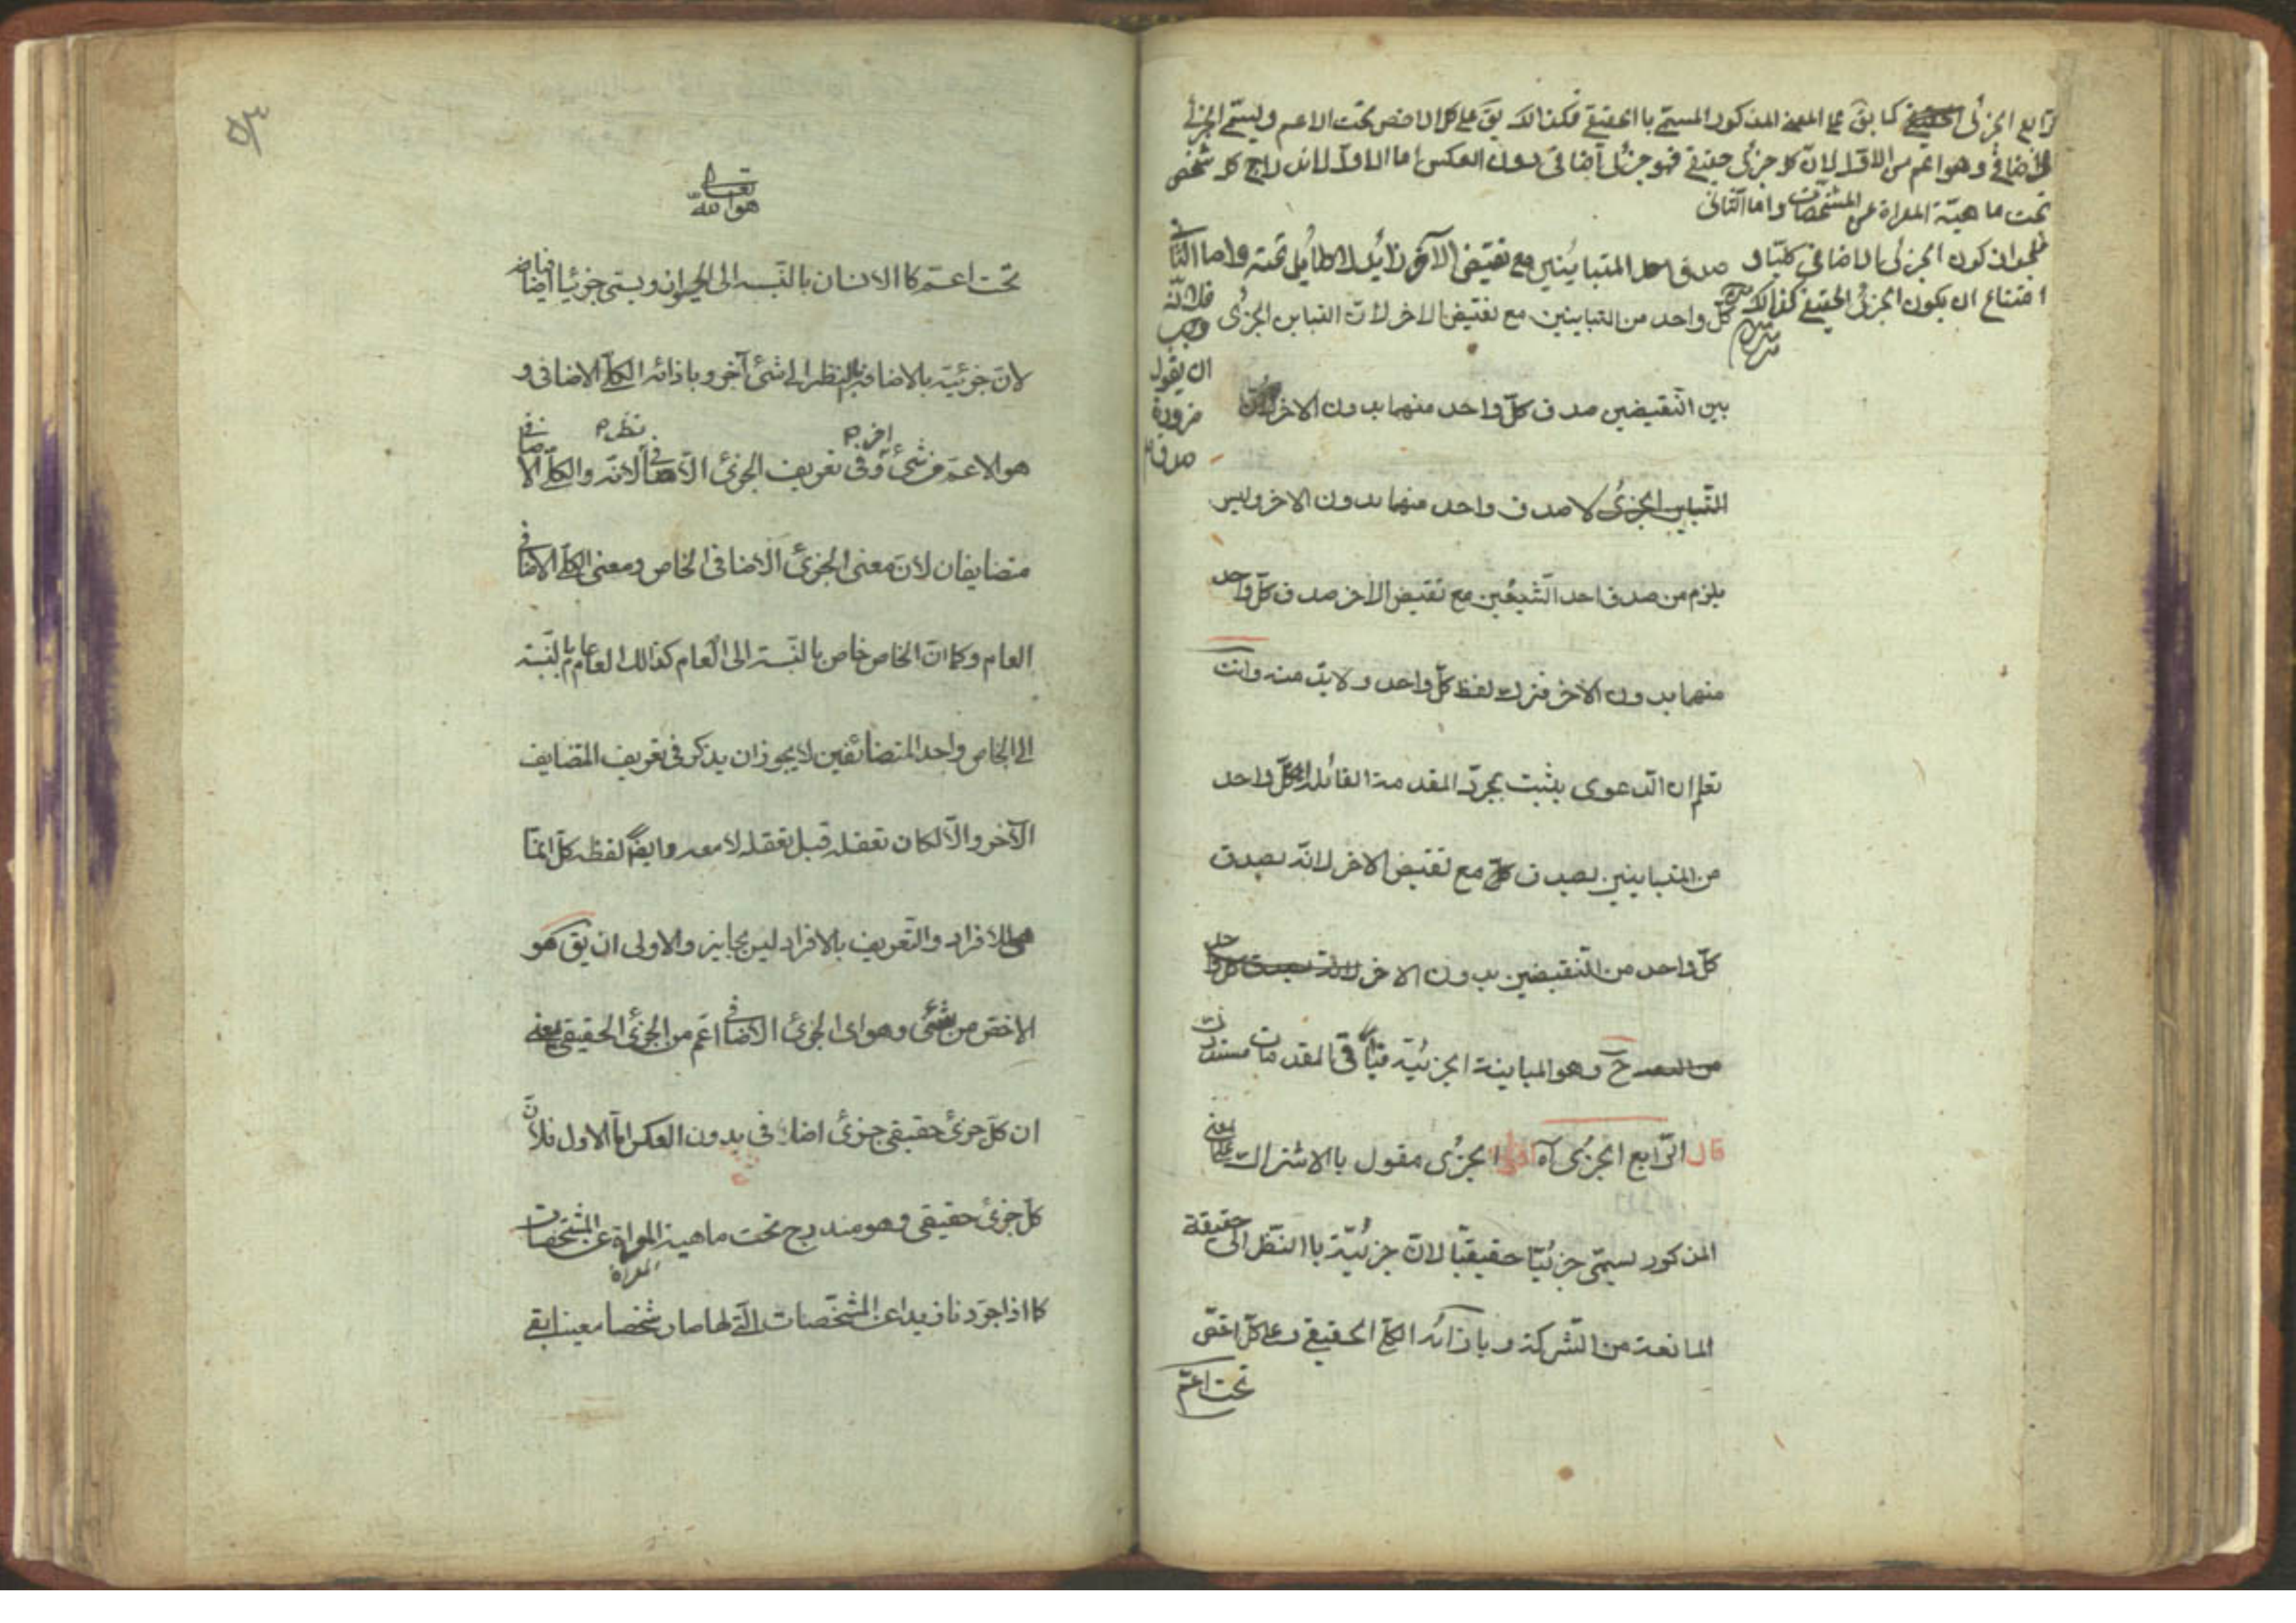 الرابع الجزئى الحقيقے كما يقَ على المعنے المذكور المسمّے باالحقيقے فكذالك يقَ على كل الاخص تحت الاعم ويسمّے الجزئى
الاضافے وهو اعم من الاوّل لانّ كل جزئى حقيقے فهو جزئى اضافى دون العكس اما الاول لاندراج كل شخص
تحت ماهيّة المعراة عن المشخصات واما الثانى
فلجواز كون الجزئى الاضافي كليّا و
امتناع ان يكون الجزئى الحقيقے كذالك
صدق احد المتباينين مع نقيض الآخر زايد لا طايل تحته واما الثانى
فلانّه
وجب
ان يقول
ضرورة
صدق
كلّ واحد من المتباينين مع نقيض الاخر لانّ التباين الجزئى
بين النّقيضين صدق كلّ واحد منهما بدون الاخر لانّ
التّباين الجزئى لا صدق واحد منهما بدون الاخر وليس
يلزم من صدق احد الشّيئين مع نقيض الاخر صدق كلّ واحد
منهما بدون الاخر فترك لفظ كلّ واحد ولابدّ منه وانت
تعلم ان الدّعوى يثبت بمجرّد المقدمة القائلة كلّ واحد
من المتباينين يصدق مع نقيض الاخر لانّه يصدق
كلّ واحد من النّقيضين بدون الاخر لانّه يصدق كلّ واحد
حَ وهو المباينة الجزئيّة فباقى المقدمات مستدرك
قال الرّابع الجزئى آه اقول الجزئى مقول باالاشتراك على المعنى
المذكور يسمّى جزئيّا حقيقيّا لانّ جزئيّة باالنّظر الى حقيقة
المانعة من الشّركة وبازائه الكلّى الحقيقے وعلى كلّ اخصّ
تحت اعمّ
٥٣
هو الله تعالى
تحت اعمّ كاالانسان بالنّسبة الى الحيوان ويسمّى جزئيّا اضافيا
لانّ جزئيّته بالاضافة بالنظر الى شئ آخر وباذائه الكلّى الاضافى و
هو الاعمّ من شئ آخر وفى تعريف الجزئ الاضافى نظر لانّه والكلّى الاضافى
متضايفان لانّ معنى الجزئ الاضافى الخاص ومعنى الكلّى الاضافى
العام وكما انّ الخاص خاص بالنّسبة الى العام كذالك العام عام بالنّسبة
الى الخاص واحد المتضائفين لا يجوز ان يذكر فى تعريف المتضايف
الآخر والّا لكان تعقله قبل تعقله لا معه وايضًا لفظة كلّ انما
هى للافراد والتّعريف بالافراد ليس بجايز والاولى ان يقَ هو
الاخصّ من شئ وهو اى الجزئ الاضافى اعمّ من الجزئ الحقيقى يعنے
ان كلّ جزئ حقيقى جزئ اضافى بدون العكس امّا الاول فلانّ
كلّ جزئ حقيقى فهو مندرج تحت ماهيته المعراة عن المشخصات
المعراة
كما اذا جرّدنا زيدا عن المشخّصات الّتى لها صار شخصا معينا بقے